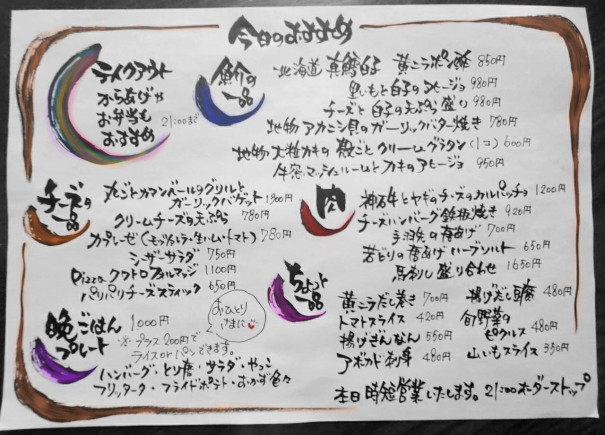 今日のおすすめ
テイクアウト
からあげや
お弁当も
おすすめ
21:00まで
魚介の一品
北海道 真鱈白子 黄ニラポン酢 850円
里いもと白子のアヒージョ 980円
チーズと白子の天ぷら盛り 980円
地物アカニシ貝のガーリックバター焼き 780円
地物大粒カキの殻ごとクリームグラタン(1コ) 600円
牛窓マッシュルームとカキのアヒージョ 950円
チーズの一品
丸ごとカマンベールのグリルと
ガーリックバゲット 1900円
クリームチーズの天ぷら 780円
カプレーゼ(モッツァレラ・生ハム・トマト) 780円
シーザーサラダ 750円
Pizza クアトロフォルマッジ 1100円
パリパリチーズスティック 650円
肉
神石牛とヤギのチーズのカルパッチョ 1200円
チーズハンバーグ鉄板焼き 920円
手羽先の唐あげ 700円
若どりの唐あげ ハーブソルト 650円
馬刺し盛り合わせ 1650円
ちょっと一品
黄ニラだし巻き 700円
トマトスライス 420円
揚げぎんなん 550円
アボカド刺身 480円
揚げだし豆腐 480円
旬野菜の
ピクルス 480円
山いもスライス 350円
晩ごはんプレート
1000円
※プラス200円で
ライスorパンできます。
おひとり
さまに
ハンバーグ・とり唐・サラダ・やっこ
フリッター・フライドポテト・おかず色々
本日時短営業いたします。21:00オーダーストップ